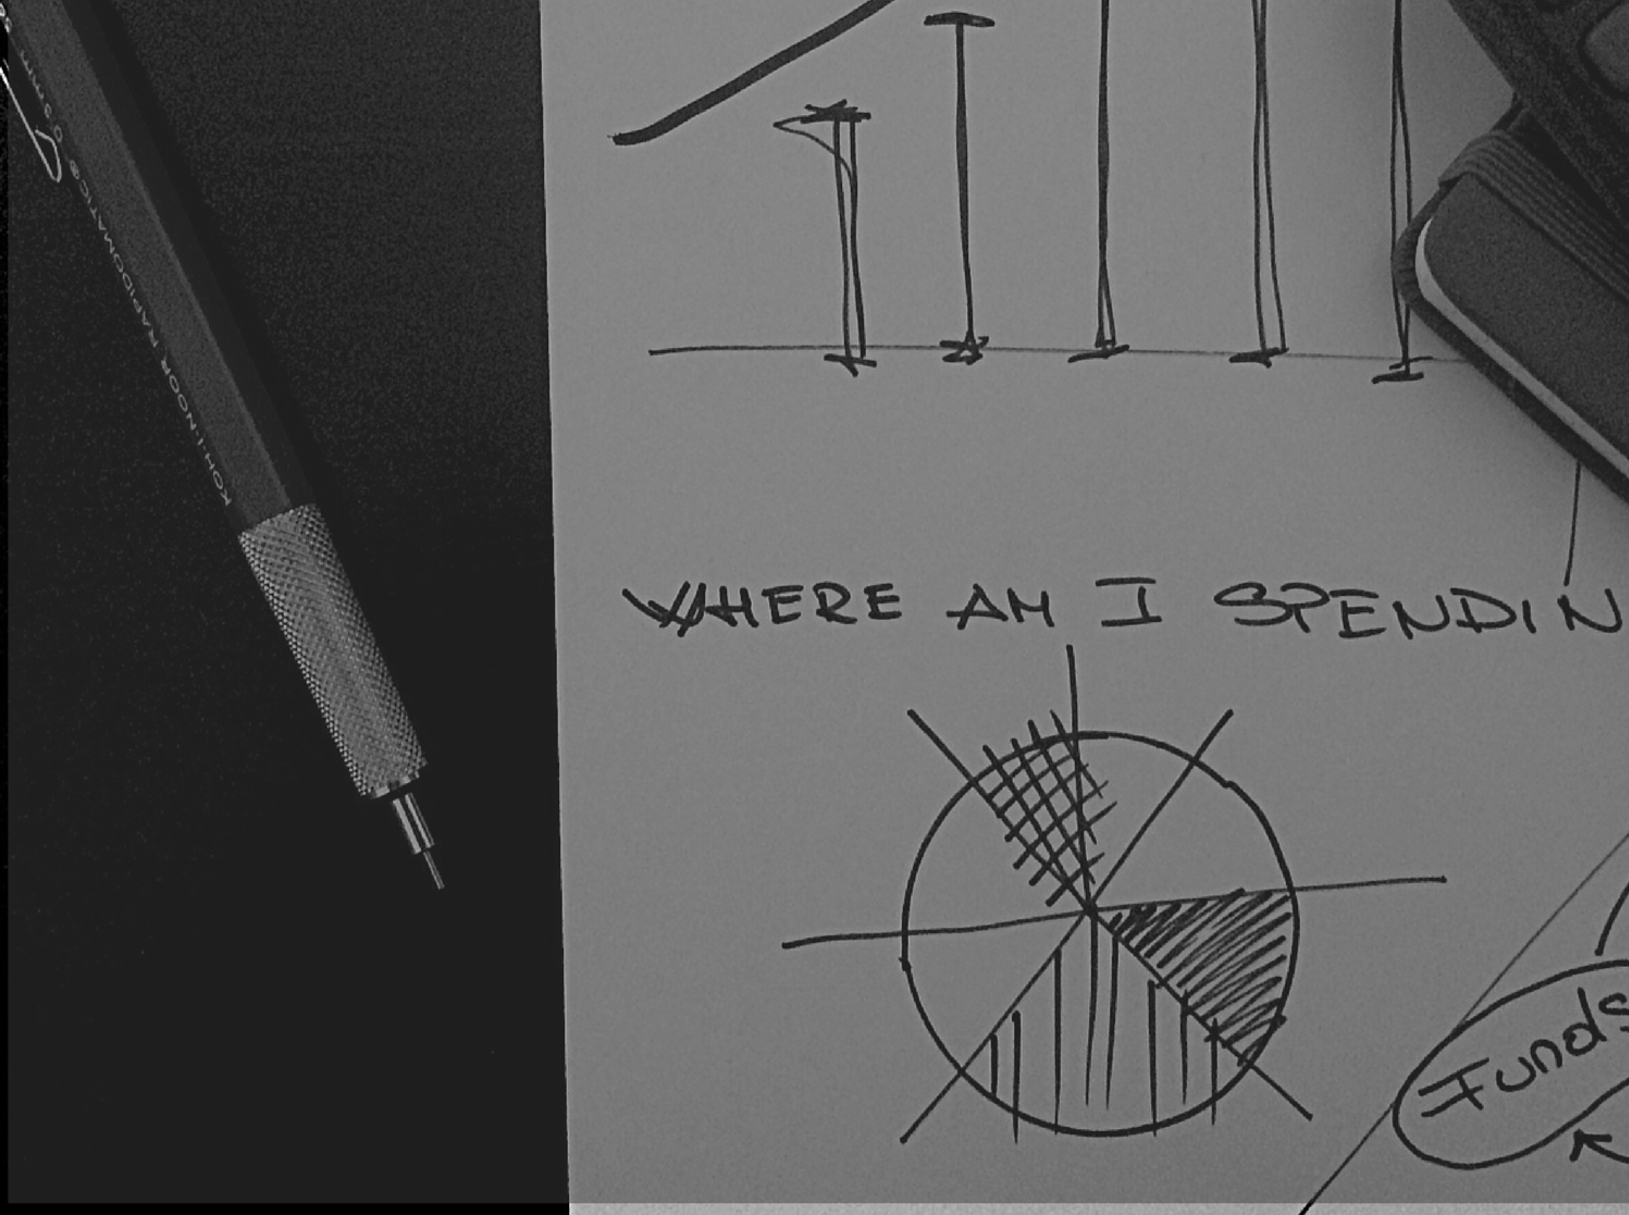 KOH-I-NOOR RAPIDOMATIC® 0.9mm
WHERE AM I SPENDIN
Funds